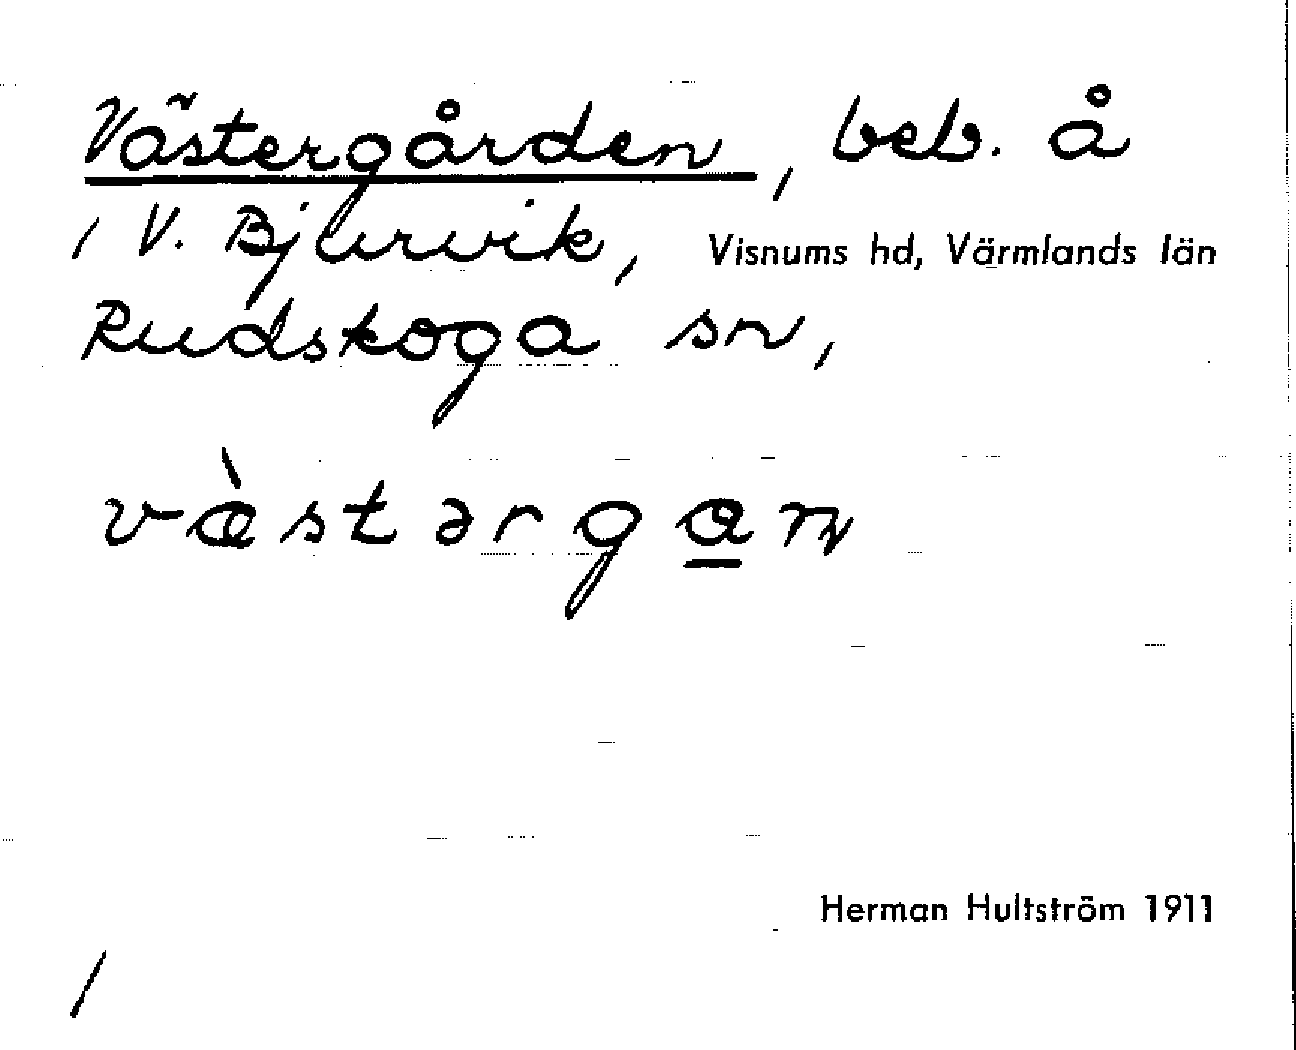 Västergården, beb. å
/ V. Bjurvik, Visnums hd, Värmlands län
Rudskoga sn,
væ̀stərga̲n
Herman Hultström 1911
/